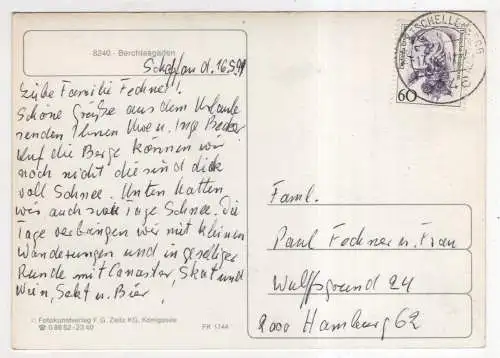 8240 - Berchtesgaden
d. 16.5.91
Liebe Familie Fechner!
Schöne Grüße aus dem Urlaub
senden Ihnen Uwe u. Inge Becker
Auf die Berge können wir
noch nicht die sind dick
voll Schnee. Unten hatten
wir auch zwei Tage Schnee. Die
Tage verbringen wir mit kleinen
Wanderungen und in geselliger
Runde mit Canaster, Skat und
Wein, Sekt u. Bier.
© Fotokunstverlag F. G. Zeitz KG, Königssee
☎ 0 86 52 - 23 40
FK 1744
SCHELLENBERG
60
Faml.
Paul Fechner u. Frau
Wulffsgrund 24
2000 Hamburg 62